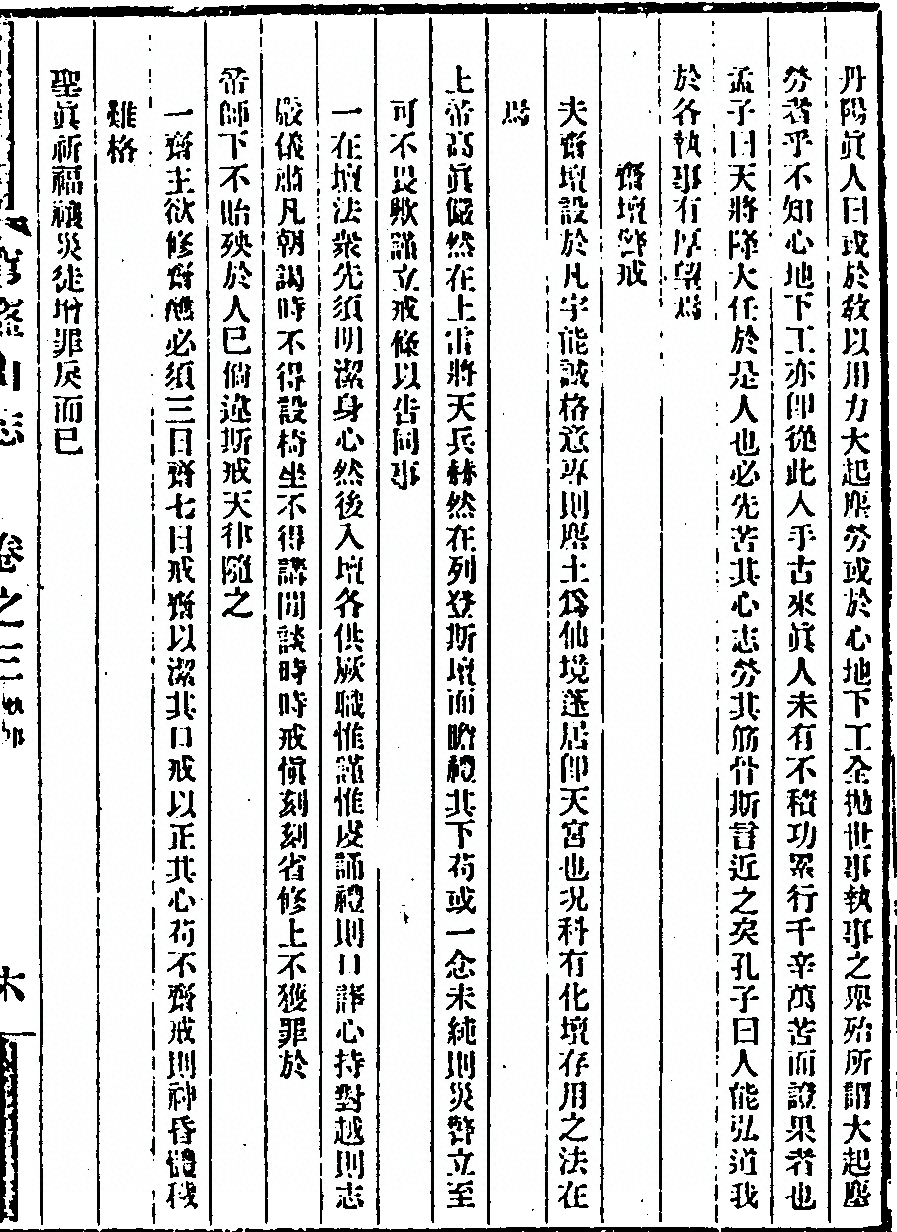 丹陽眞人曰或於敎以用力大起塵勞或於心地下工全抛世事執事之輩殆所謂大起塵
勞者乎不知心地下工亦卽從此入手古來眞人未有不積功累行千辛萬苦而證果者也
孟子曰天將降大任於是人也必先苦其心志勞其筋骨斯言近之矣孔子曰人能弘道我
於各執事有厚望焉
齋壇警戒
夫齋壇設於凡宇能誠格意專則塵土爲仙境蓬居卽天宮也况科有化壇存用之法在
焉
上帝高眞儼然在上雷將天兵赫然在列登斯壇而瞻禮其下苟或一念未純則災譴立至
可不畏歟謹立戒條以告同事
一在壇法衆先須明潔身心然後入壇各供厥職惟謹惟虔誦禮則口誦心持對越則志
嚴儀肅凡朝謁時不得設椅坐不得講閒談時時戒愼刻刻省修上不獲罪於
帝師下不貽殃於人已倘違斯戒天律隨之
一齋主欲修齋醮必須三日齋七日戒齋以潔其口戒以正其心苟不齋戒則神昏體穢
難格
聖眞祈福禳災徒增罪戾而已
山志　卷之三　六